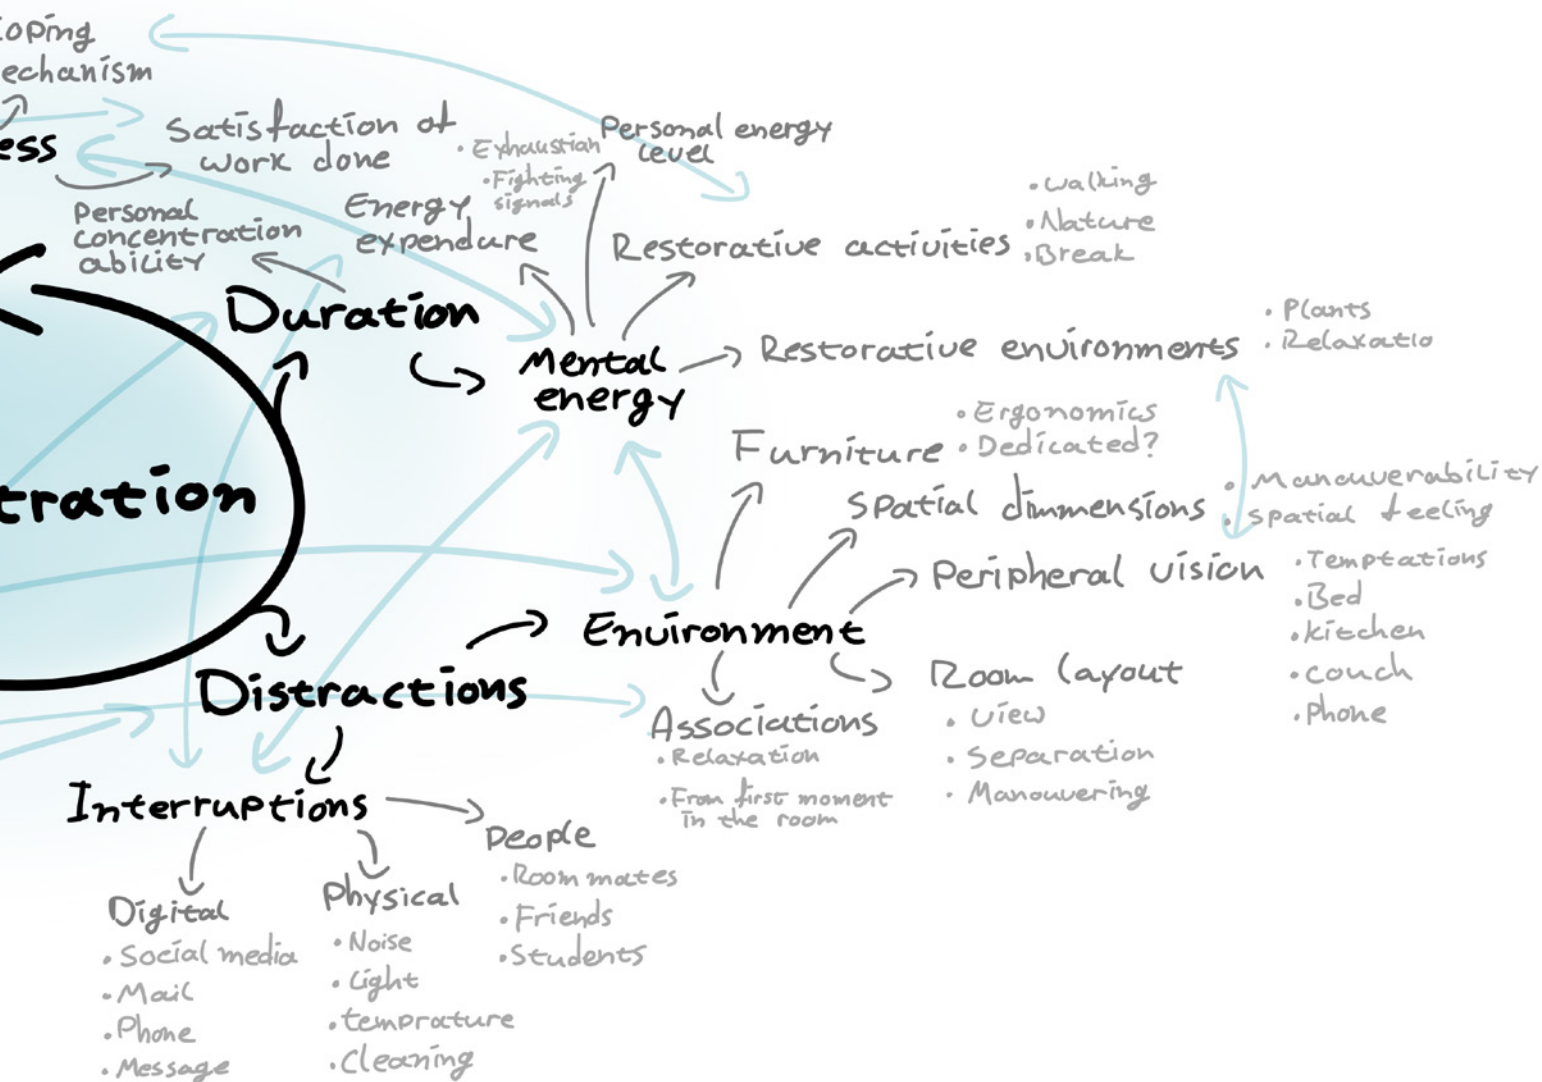 oping
echanism
ess
Satisfaction of
work done
Personal
concentration
ability
Energy
expendure
• Exhaustian
• Fighting
signals
Personal energy
level
Restorative activities
• Walking
• Nature
• Break
Duration
Mental
energy
Restorative environments
• Plants
• Relaxatio
Furniture
• Ergonomics
• Dedicated?
Spatial dimmensions
• Manouverability
• Spatial feeling
tration
Peripheral vision
• Temptations
• Bed
• Kitchen
• Couch
• Phone
Environment
Distractions
Room layout
• View
• Separation
• Manouvering
Associations
• Relaxation
• From first moment
in the room
Interruptions
People
• Room mates
• Friends
• Students
Physical
• Noise
• Light
• temprature
• Cleaning
Digital
• Social media
• Mail
• Phone
• Message